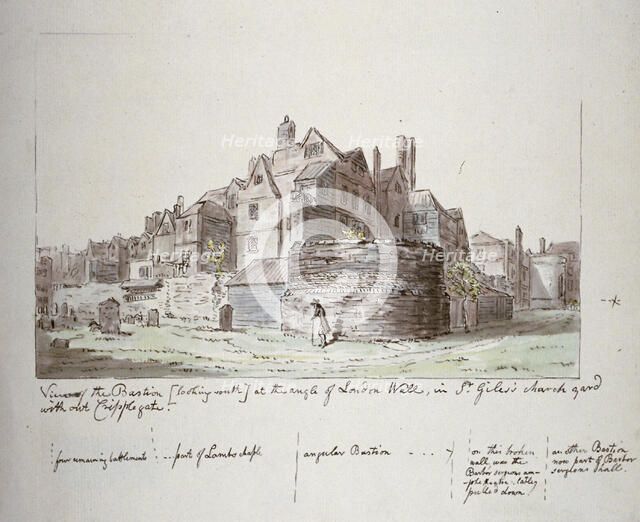 Heritage Heritage
Heritage Heritage
View of the Bastion [looking south] at the angle of London Wall, in St. Giles's church yard
with out Cripplegate.
four remaining battlements
part of Lambs chaple
angular Bastion
on this broken
wall was the
Barbor surgions
latley
pulled down.
another Bastion
now part of Barbor
surgions Hall.